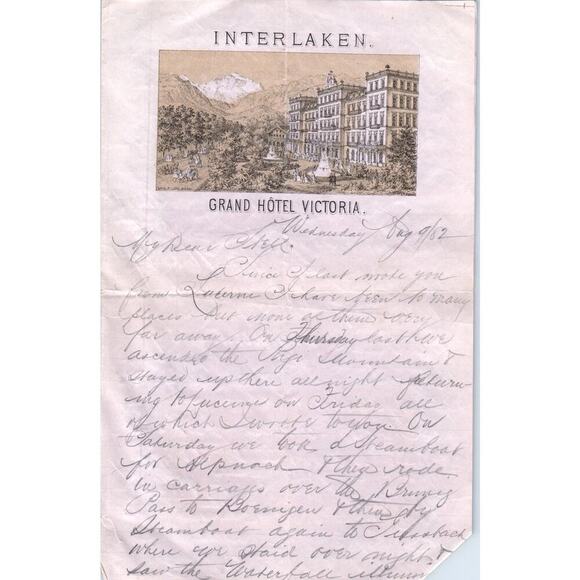 INTERLAKEN.
GRAND HÔTEL VICTORIA.
Wednesday Aug 9/82
My Dear
Since I last wrote you
from Lucerne I have been to many
places but none of them very
far away. On Thursday last we
ascended the Rigi Mountain &
stayed up there all night return-
ing to Lucerne on Friday all
of which I wrote to you. On
Saturday we took a Steamboat
for Alpnach & then rode
in carriages over the Brunig
Pass to Boenigen & then by
Steamboat again to Giessbach
where we staid over night &
saw the Waterfall illum